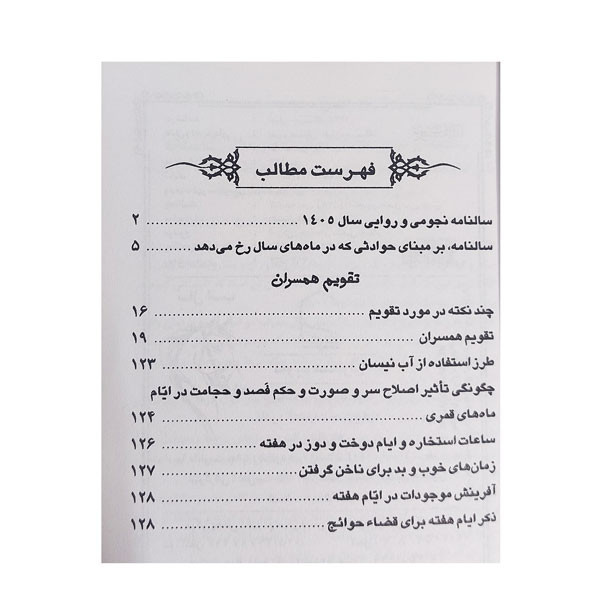 فهرست مطالب
سالنامه نجومی و روایی سال ۱۴۰۵ ........................ ۲
سالنامه، بر مبنای حوادثی که در ماه‌های سال رخ می‌دهد ...... ۵
تقویم همسران
چند نکته در مورد تقویم ........................ ۱۶
تقویم همسران ........................ ۱۹
طرز استفاده از آب نیسان ........................ ۱۲۳
چگونگی تأثیر اصلاح سر و صورت و حکم فَصد و حجامت در ایّام
ماه‌های قمری ........................ ۱۲۴
ساعات استخاره و ایام دوخت و دوز در هفته ............ ۱۲۶
زمان‌های خوب و بد برای ناخن گرفتن ............ ۱۲۷
آفرینش موجودات در ایّام هفته ............ ۱۲۸
ذکر ایام هفته برای قضاء حوائج ............ ۱۲۸